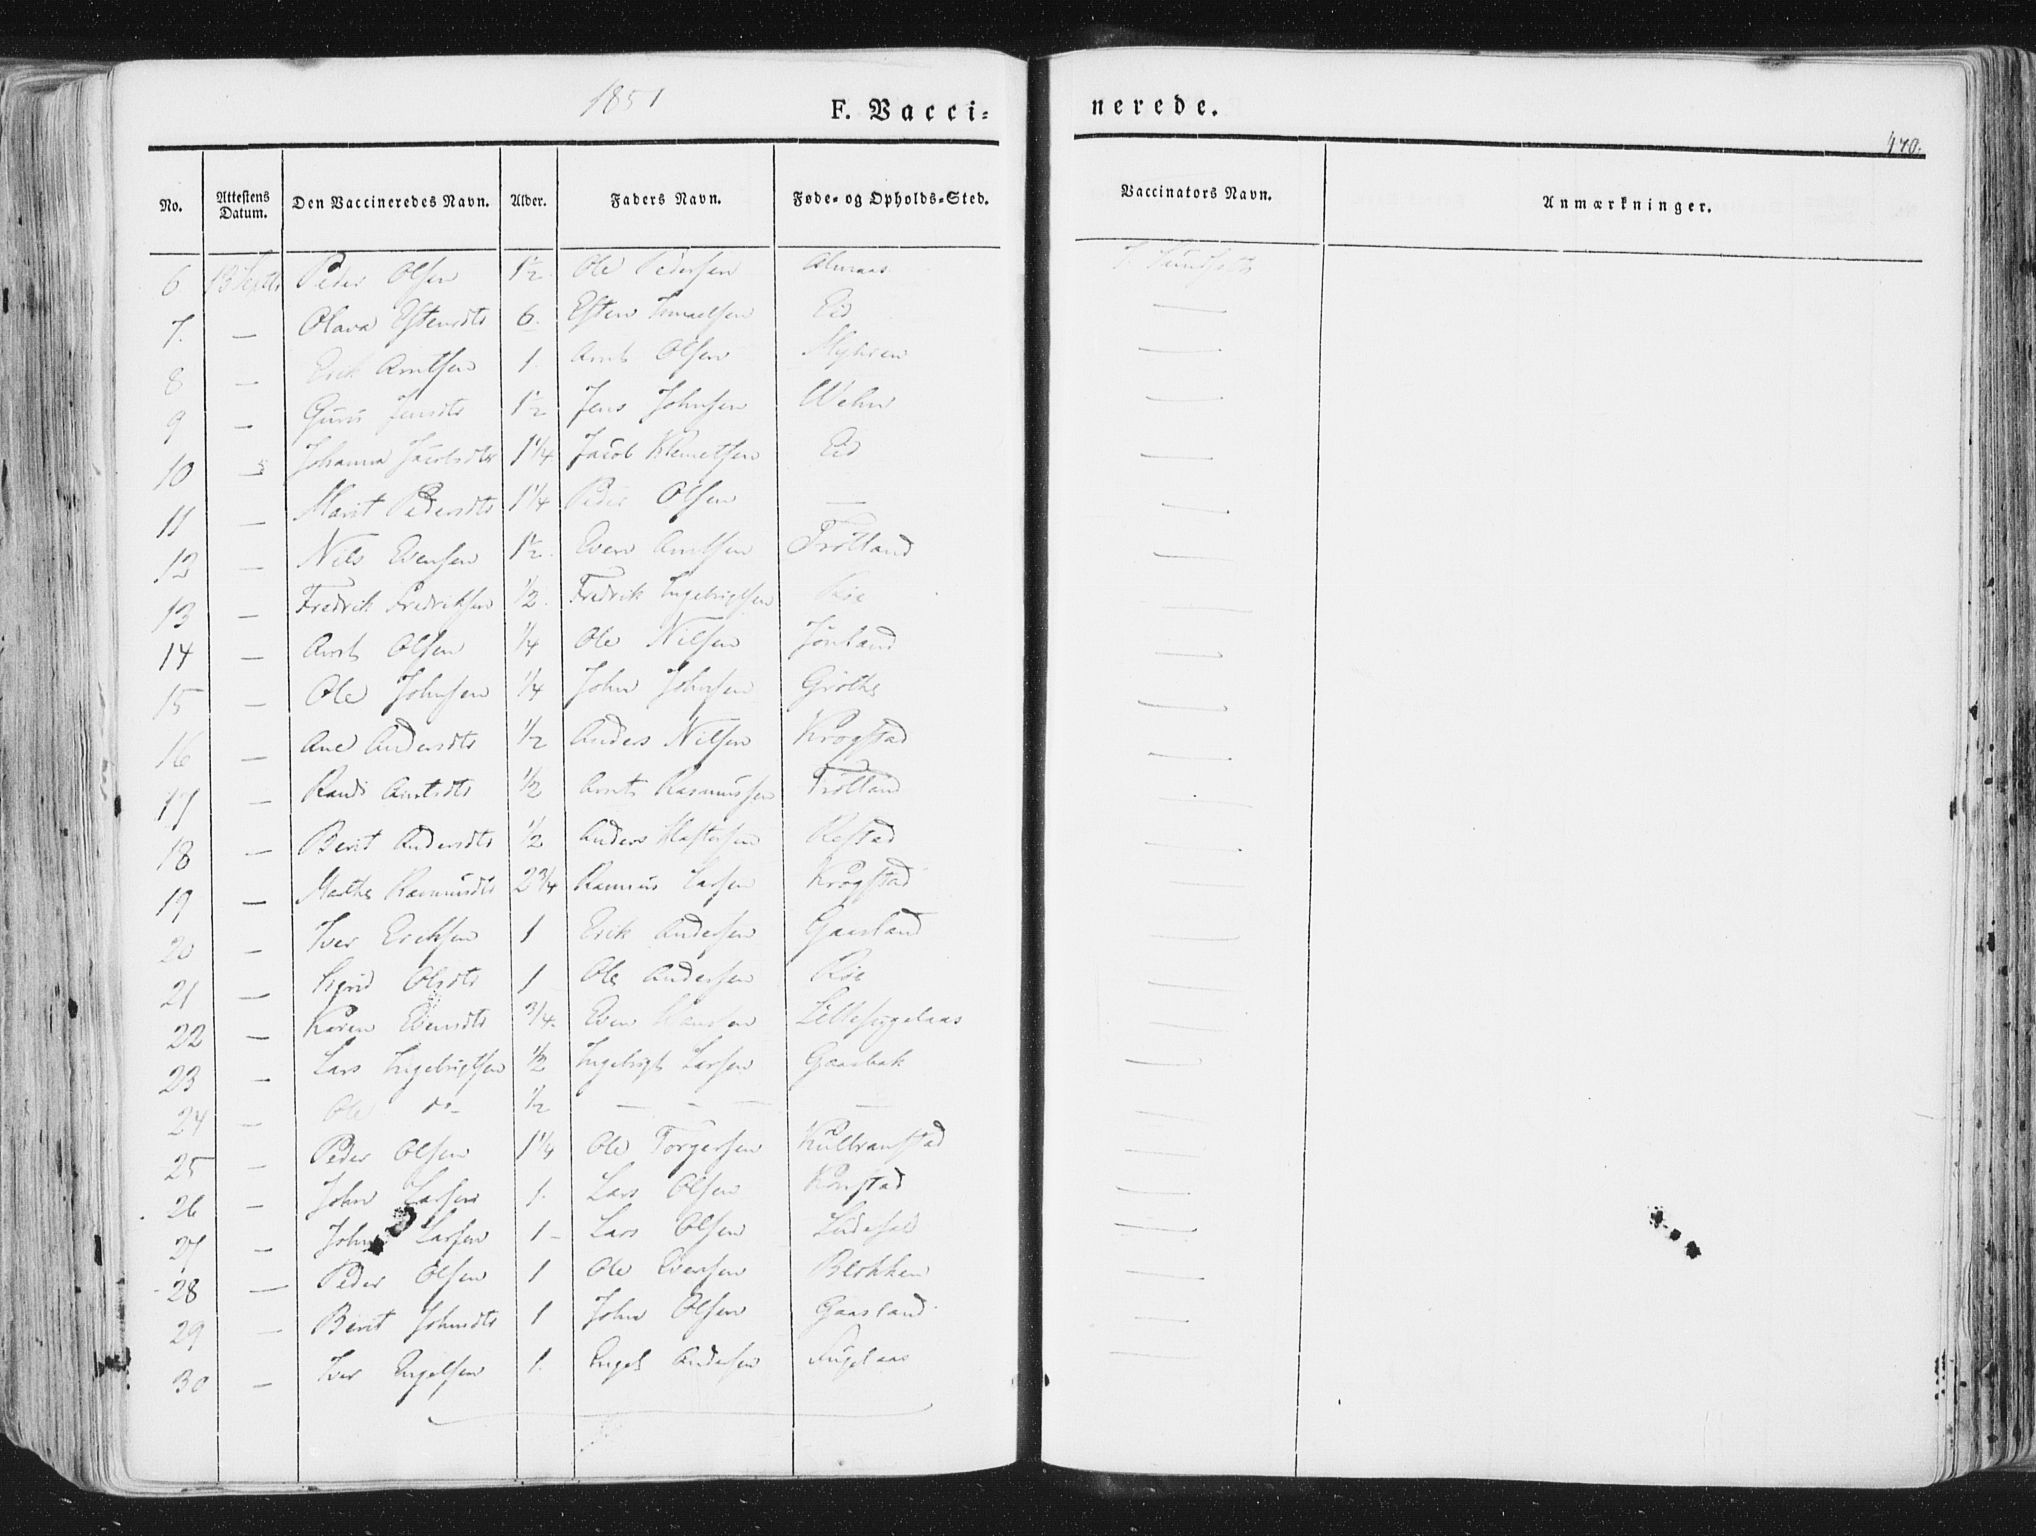 1851
F. Vacci=
nerede.
470.
No. Attestens Datum. Den Vaccineredes Navn. Alder. Faders Navn. Føde= og Opholds=Sted. Vaccinators Navn. Anmærkninger.
6 13 Septbr Peder Olsen 1½ Ole Pedersen Almaas
7. — Olava Estensdtr 6. Esten Ismaelsen Eid —
8 — Erik Arntsen 1. Arnt Olsen Myhren —
9 — Guru Jensdtr 1½ Jens Johnsen —
10 — Johanna Jacobsdtr 1¼ Jacob Klemetsen Eid —
11 — Marit Pedersdtr 1¼ Peder Olsen — —
12 — Nils Evensen 1½. Even Arntsen Frøtland —
13 — Fredrik Fredriksen ½. Fredrik Ingebrigtsen Røe —
14 — Arnt Olsen ¼ Ole Nilsen —
15 — Ole Johnsen ¼ John Johnsen Grøthe —
16 — Ane Andersdtr ½ Anders Nilsen Krogstad —
17 — Randi Arntsdtr ½ Arnt Rasmussen Frøtland —
18 — Berit Andersdtr ½ Anders —
19 — Marthe Rasmusdtr 2¾ Rasmus Larsen Krogstad —
20 — Iver Eriksen 1 Erik Andersen Gaasland —
21 — Sigrid Olsdtr 1 Ole Andersen Røe —
22 — Karen Evensdtr ¾. Even Hansen Lillefuglaas —
23 — Lars Ingebrigtsen ½ Ingebrigt Larsen Gaasbak —
24 — Ole do — ½ — — — — —
25 — Peder Olsen 1¼ Ole Torgersen Kulbranstad —
26 — John Larsen 1. Lars Olsen Kønstad —
27 — John Larsen 1 — Lars Olsen —
28 — Peder Olsen 1 Ole Evensen Blokken —
29 — Berit Johnsdtr 1 John Olsen Gaasland —
30 — Iver Engelsen 1. Engel Andersen Fuglaas —